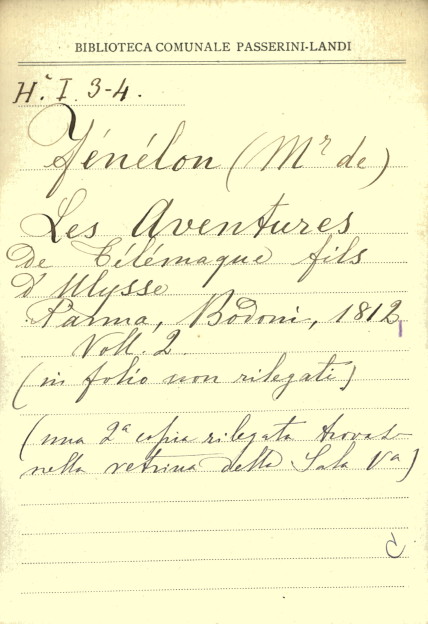 BIBLIOTECA COMUNALE PASSERINI-LANDI
H.° I. 3-4.
Fénélon (Mr de)
Les Aventures
De Télémaque fils
D'Ulysse
Parma, Bodoni, 1812
Voll. 2.
(in folio non rilegati)
(una 2ª copia rilegata trovasi
nella vetrina della Sala Vª)
C